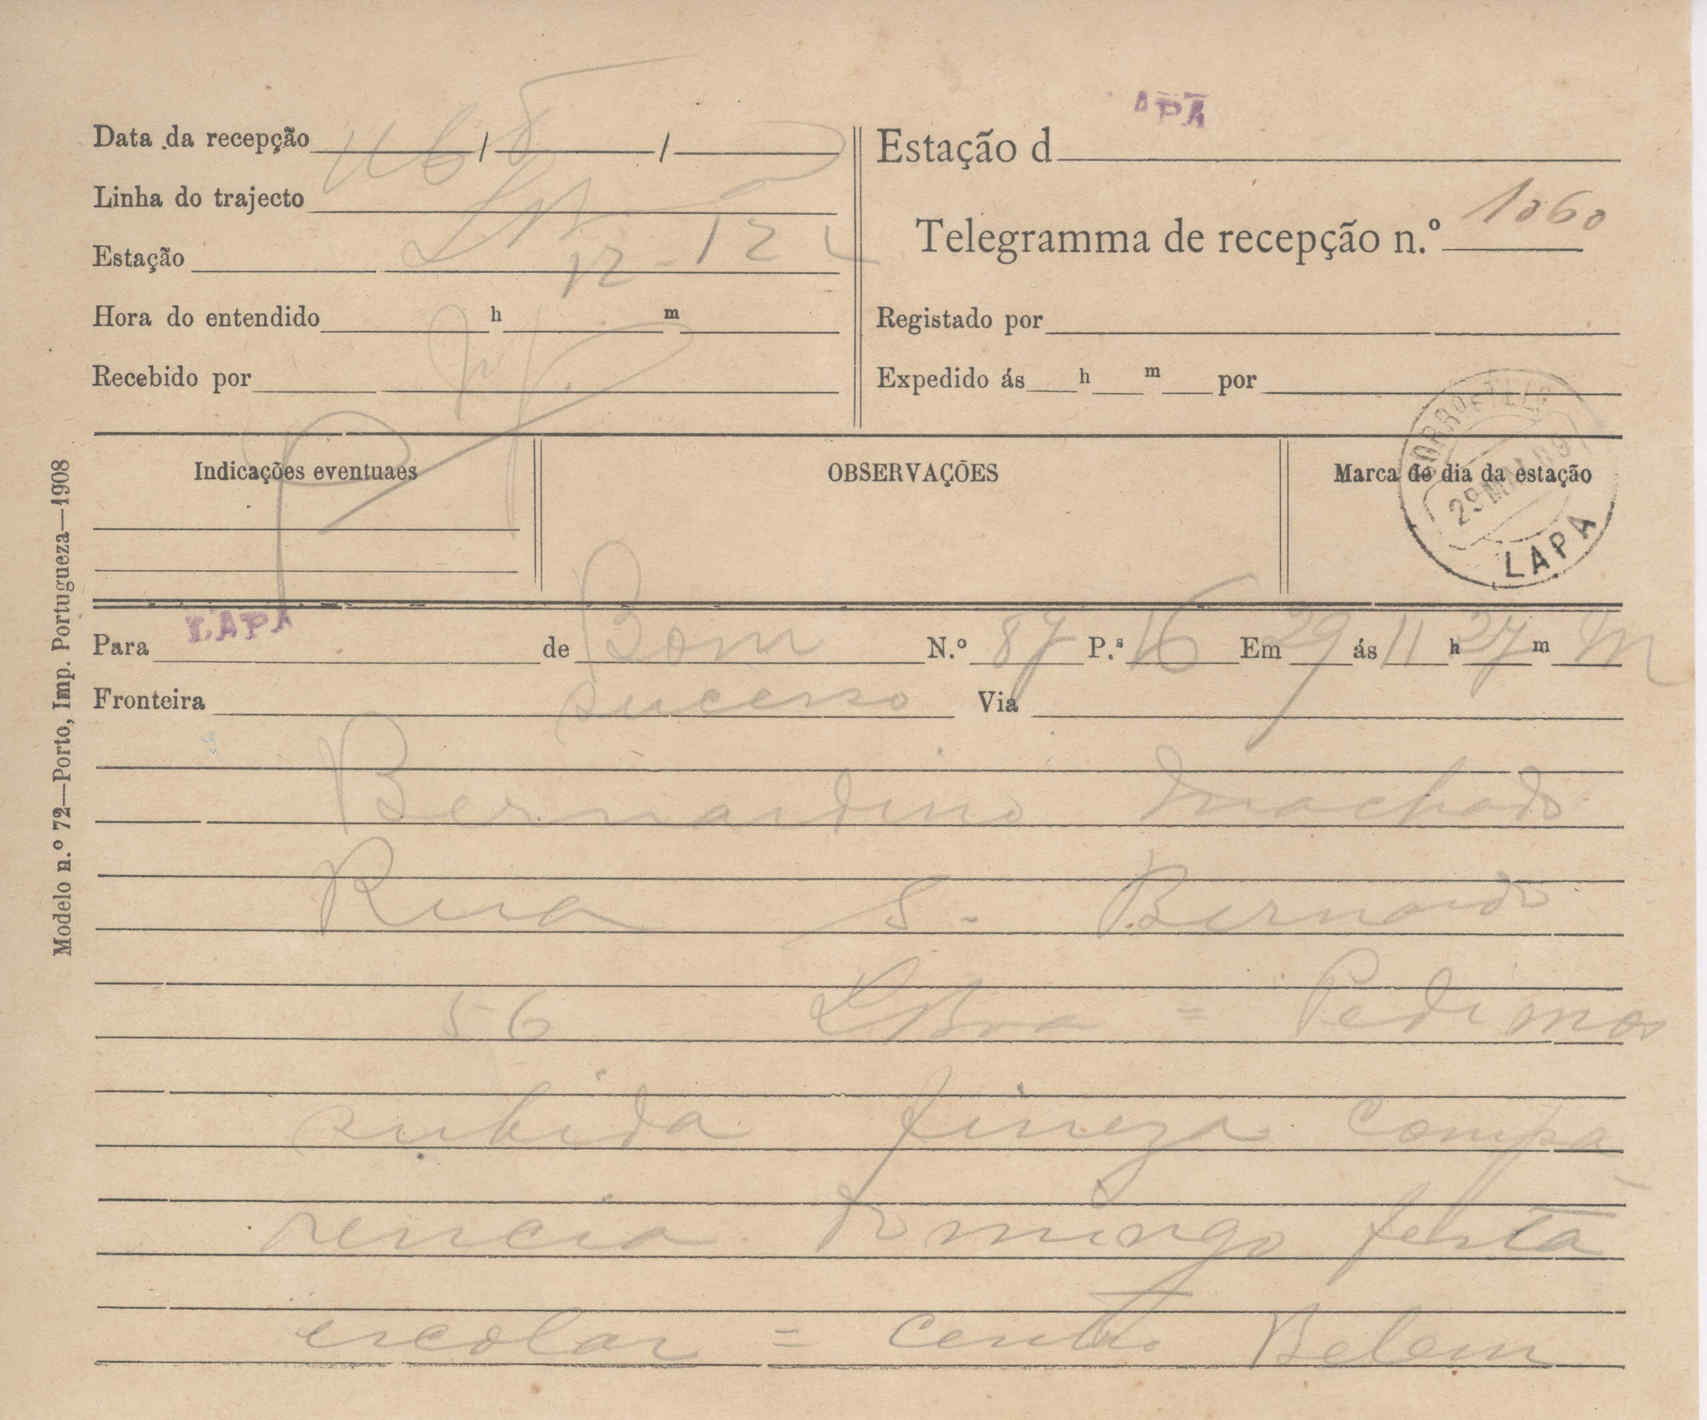 Data da recepção / /
Linha do trajecto
Estação
12 - 12
Hora do entendido h m
Recebido por
APA
Estação d
Telegramma de recepção n.º 1060
Registado por
Expedido ás h m por
Indicações eventuaes
OBSERVAÇÕES
Marca de dia da estação
29 MAI
LAPA
Modelo n.º 72—Porto, Imp. Portugueza—1908
Para LAPA de Bom N.º 87 P.ª 16 Em 29 ás 11 h 27 m M
Fronteira sucesso Via
Bernardino Machado
Rua S. Bernardo
56 LBoa = Pedimos
subida fineza compa
rencia domingo festa
escolar = centro Belem